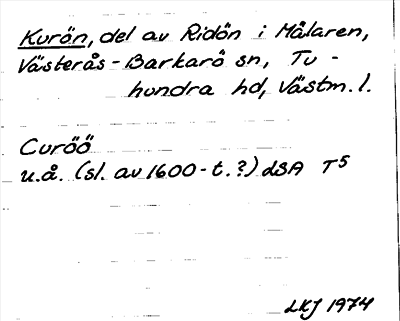 Kurön, del av Ridön i Mälaren,
Västerås-Barkarö sn, Tu-
hundra hd, Västm. l.
Curöö
u.å. (sl. av 1600-t.?) LSA T5
LKJ 1974